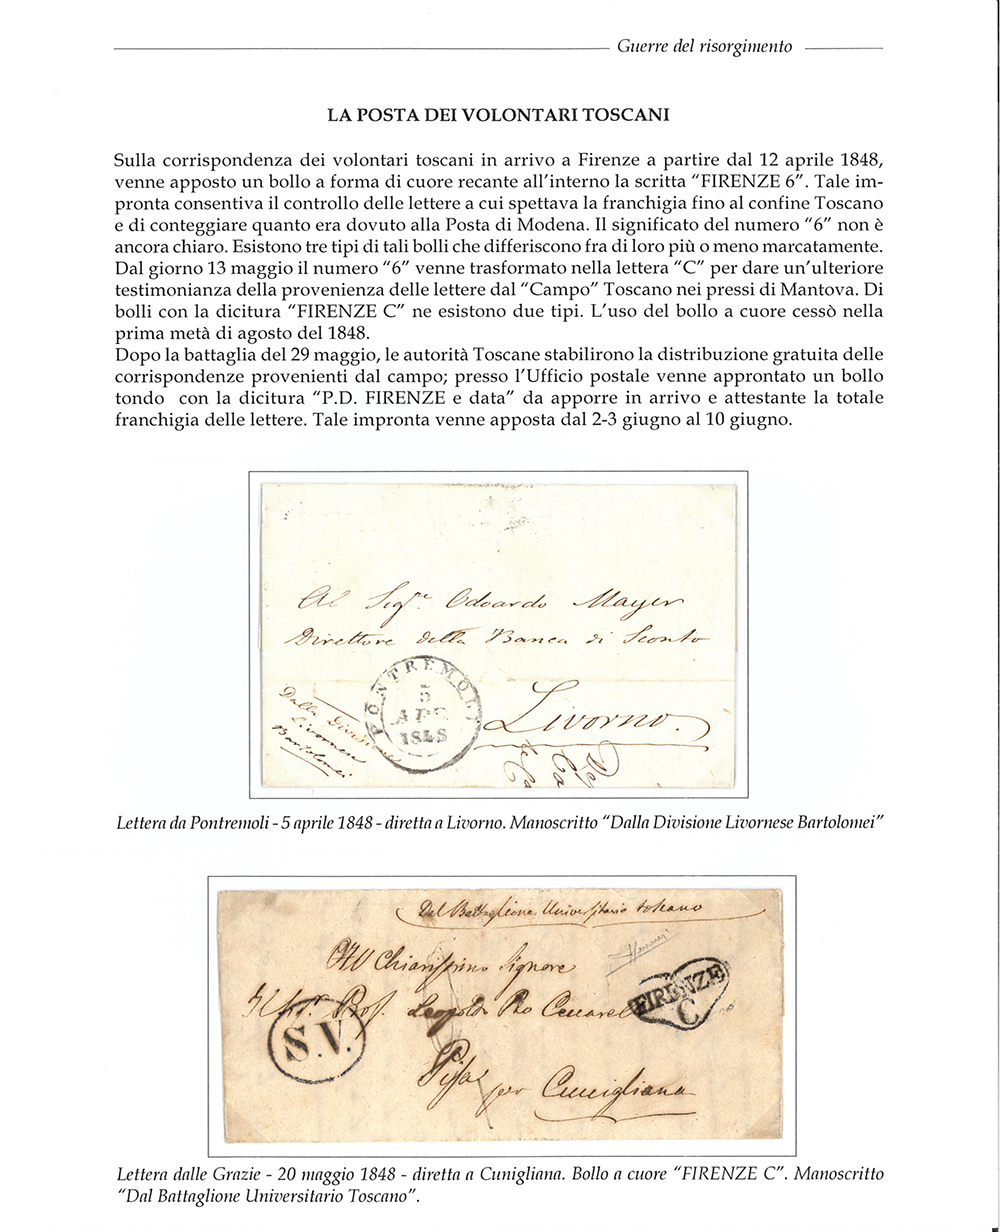 Guerre del risorgimento
LA POSTA DEI VOLONTARI TOSCANI
Sulla corrispondenza dei volontari toscani in arrivo a Firenze a partire dal 12 aprile 1848,
venne apposto un bollo a forma di cuore recante all'interno la scritta "FIRENZE 6". Tale im-
pronta consentiva il controllo delle lettere a cui spettava la franchigia fino al confine Toscano
e di conteggiare quanto era dovuto alla Posta di Modena. Il significato del numero "6" non è
ancora chiaro. Esistono tre tipi di tali bolli che differiscono fra di loro più o meno marcatamente.
Dal giorno 13 maggio il numero "6" venne trasformato nella lettera "C" per dare un'ulteriore
testimonianza della provenienza delle lettere dal "Campo" Toscano nei pressi di Mantova. Di
bolli con la dicitura "FIRENZE C" ne esistono due tipi. L'uso del bollo a cuore cessò nella
prima metà di agosto del 1848.
Dopo la battaglia del 29 maggio, le autorità Toscane stabilirono la distribuzione gratuita delle
corrispondenze provenienti dal campo; presso l'Ufficio postale venne approntato un bollo
tondo con la dicitura "P.D. FIRENZE e data" da apporre in arrivo e attestante la totale
franchigia delle lettere. Tale impronta venne apposta dal 2-3 giugno al 10 giugno.
Al Sigre Odoardo Mayer
Direttore della Banca di Sconto
Livorno.
PONTREMOLI
5
APR
1848
Dalla Divisione
Livornese
Bartolomei
Lettera da Pontremoli - 5 aprile 1848 - diretta a Livorno. Manoscritto "Dalla Divisione Livornese Bartolomei"
Dal Battaglione Universitario toscano
Chiarissimo Signore
Prof. Leopoldo
FIRENZE
C
S.V.
Pisa
per Cunigliana
Lettera dalle Grazie - 20 maggio 1848 - diretta a Cunigliana. Bollo a cuore "FIRENZE C". Manoscritto
"Dal Battaglione Universitario Toscano".